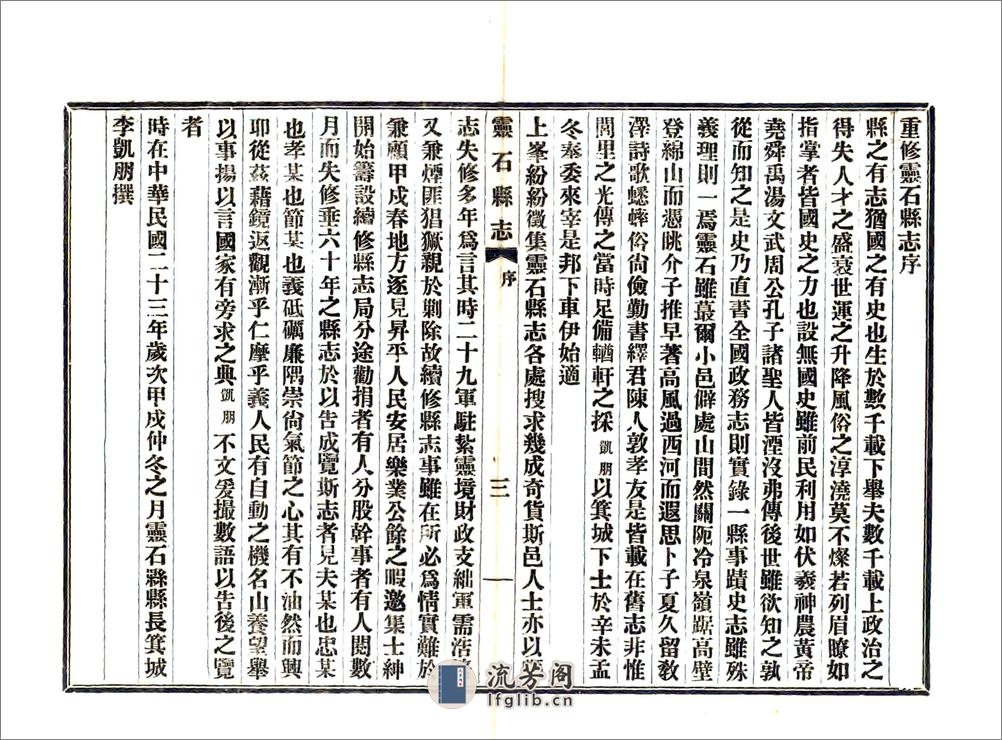 重修靈石縣志序
縣之有志猶國之有史也生於數千載下舉夫數千載上政治之
得失人才之盛衰世運之升降風俗之淳澆莫不燦若列眉瞭如
指掌者皆國史之力也設無國史雖前民利用如伏羲神農黃帝
堯舜禹湯文武周公孔子諸聖人皆湮沒弗傳後世雖欲知之孰
從而知之是史乃直書全國政務志則實錄一縣事蹟史志雖殊
義理則一焉靈石雖蕞爾小邑僻處山間然關阨冷泉嶺踞高壁
登綿山而憑眺介子推早著高風過西河而遐思卜子夏久留敎
澤詩歌蟋蟀俗尙儉勤書繹君陳人敦孝友是皆載在舊志非惟
閭里之光傳之當時足備輶軒之採凱朋以箕城下士於辛未孟
冬奉委來宰是邦下車伊始適
上峯紛紛徵集靈石縣志各處搜求幾成奇貨斯邑人士亦以
靈石縣志 序 三
志失修多年爲言其時二十九軍駐紮靈境財政支絀軍需浩
又兼煙匪猖獗親於剿除故續修縣志事雖在所必爲情實難於
兼顧甲戌春地方逐見昇平人民安居樂業公餘之暇邀集士紳
開始籌設續修縣志局分途勸捐者有人分股幹事者有人閱數
月而失修垂六十年之縣志於以告成覽斯志者見夫某也忠某
也孝某也節某也義砥礪廉隅崇尙氣節之心其有不油然而興
卽從茲藉鏡返觀漸乎仁摩乎義人民有自動之機名山養望舉
以事揚以言國家有旁求之典凱朋不文爰撮數語以告後之覽
者
時在中華民國二十三年歲次甲戌仲冬之月靈石縣縣長箕城
李凱朋撰
流芳阁
lfglib.cn